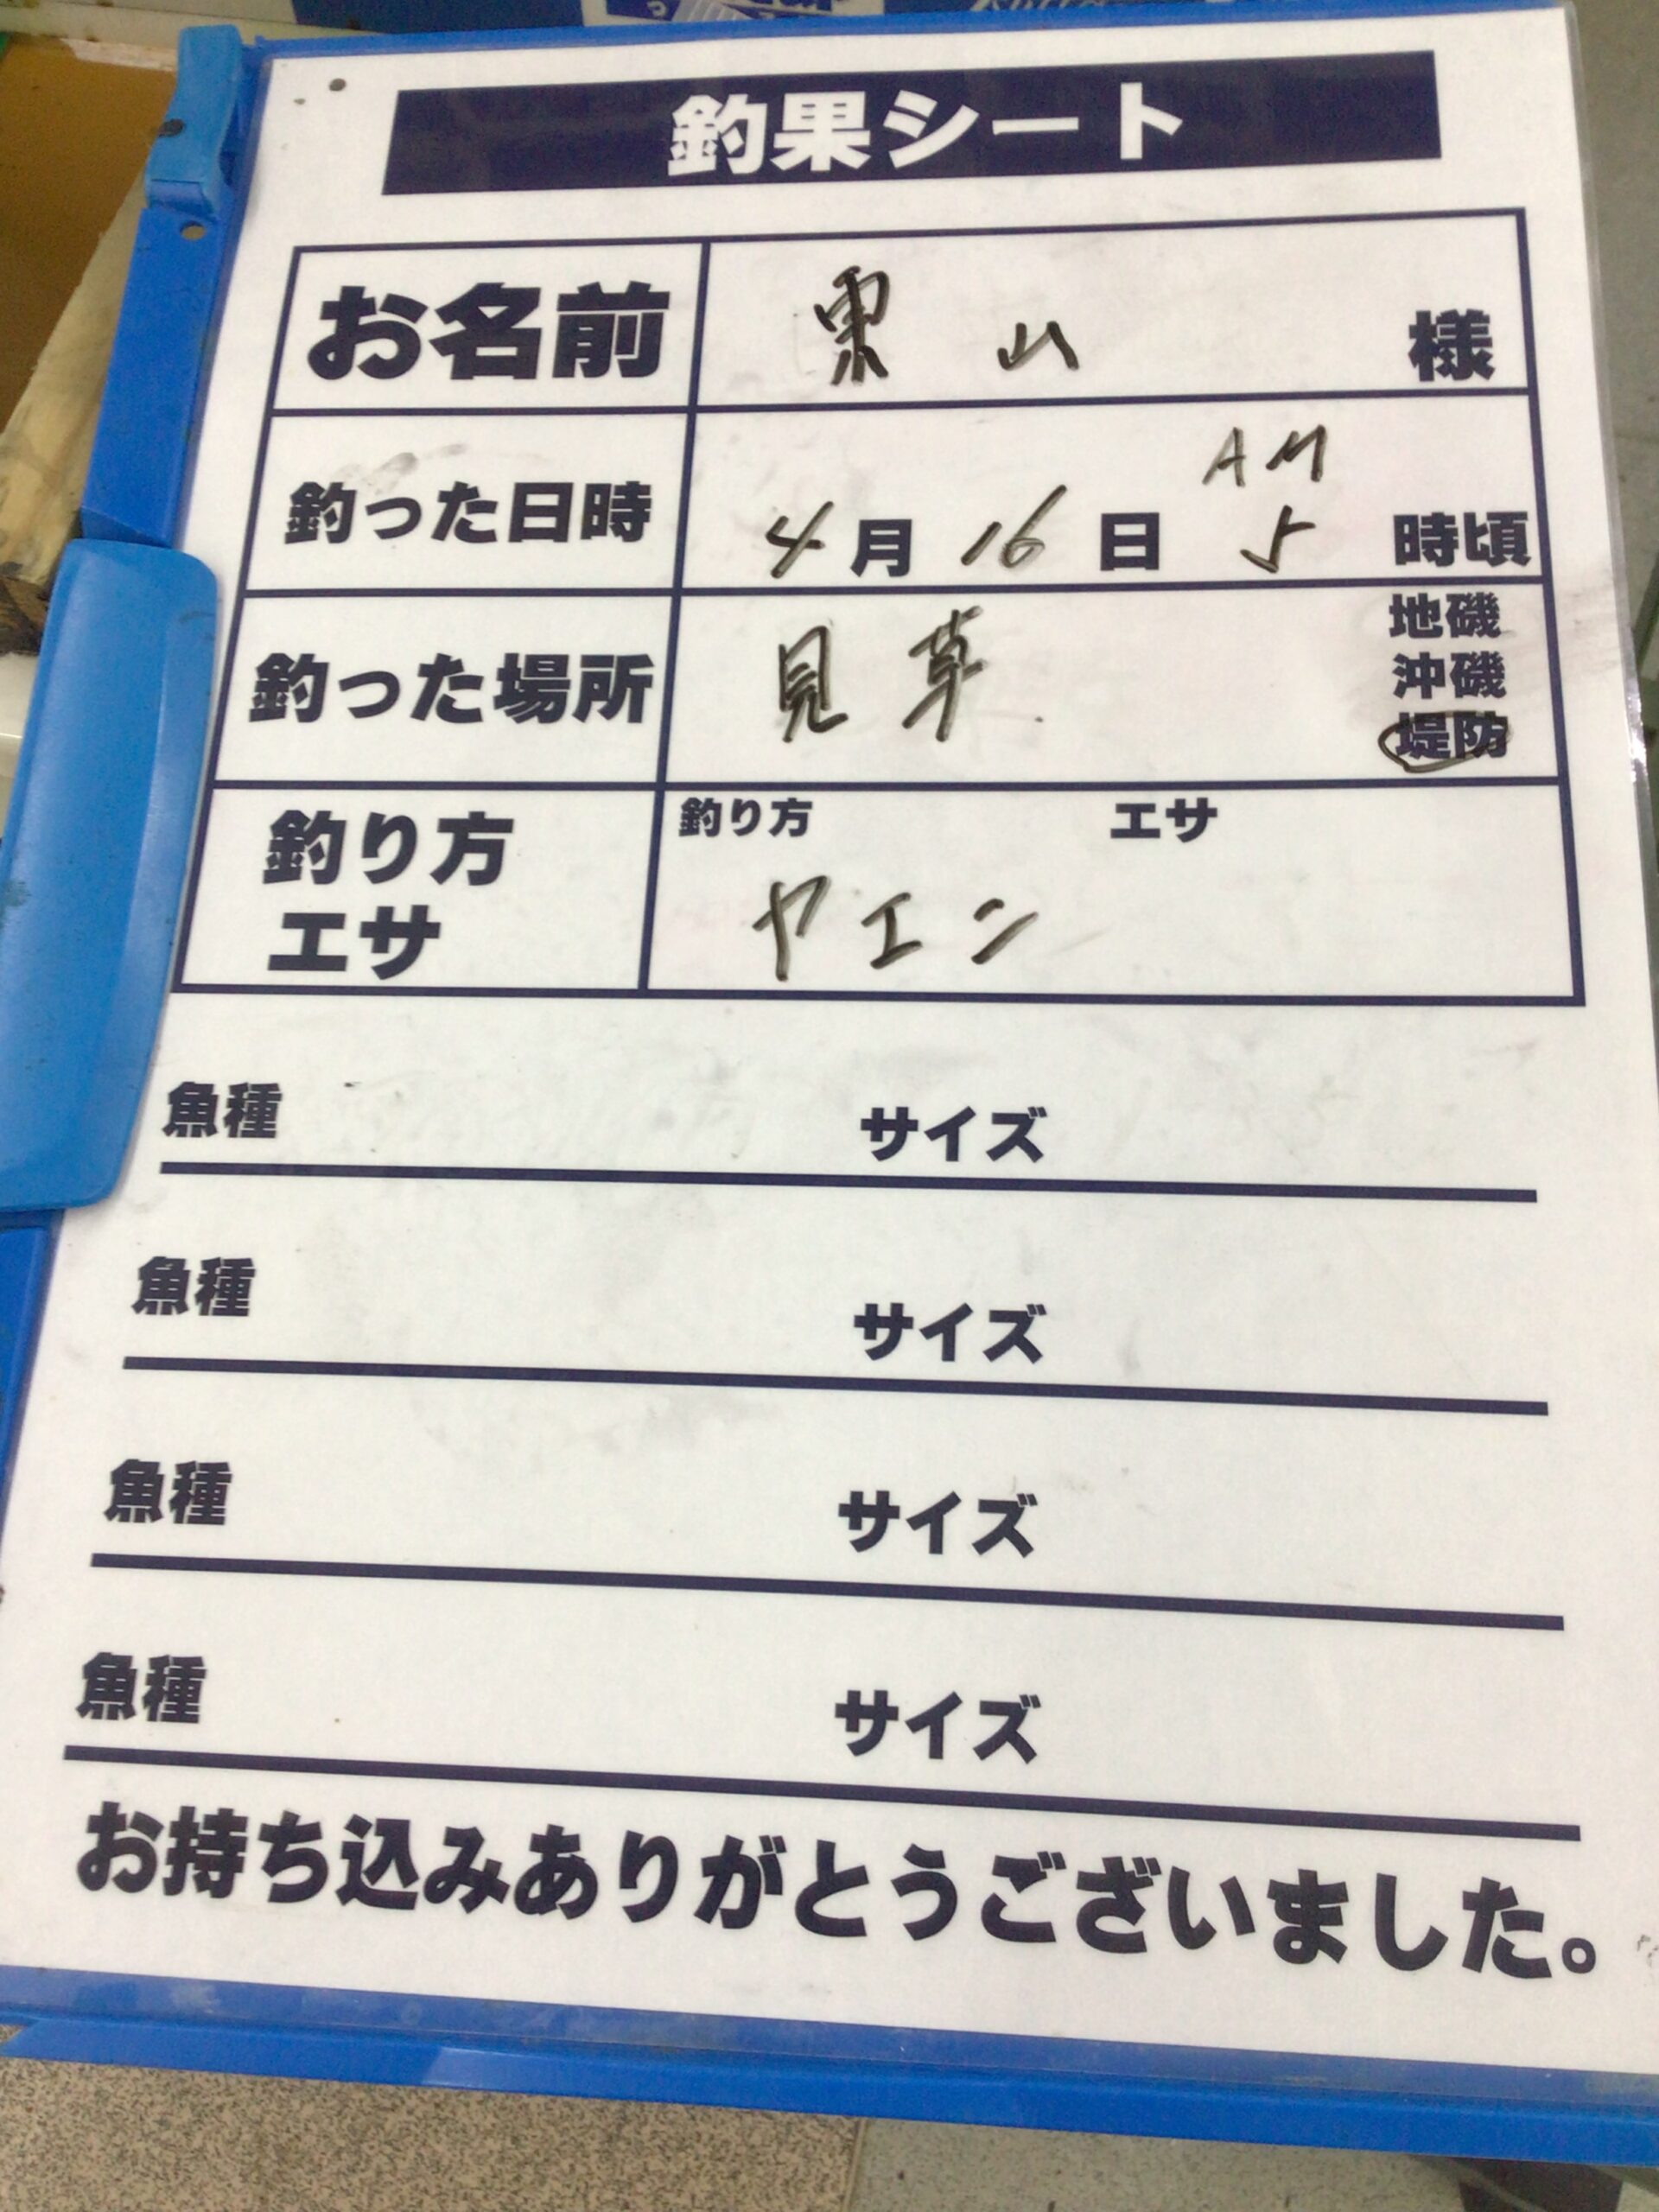 釣果シート
お名前 東山 様
釣った日時 4月16日 AM5時頃
釣った場所 見草 地磯
沖磯
堤防
釣り方 エサ 釣り方 エサ
ヤエン
魚種 サイズ
魚種 サイズ
魚種 サイズ
魚種 サイズ
お持ち込みありがとうございました。